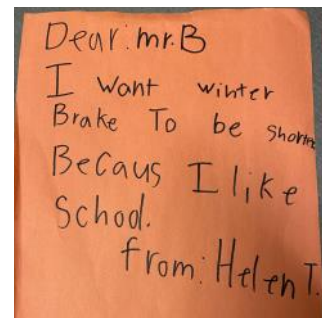 Dear: mr. B
I want winter
Brake To be shorter
Becaus I like
School.
from: Helen T.